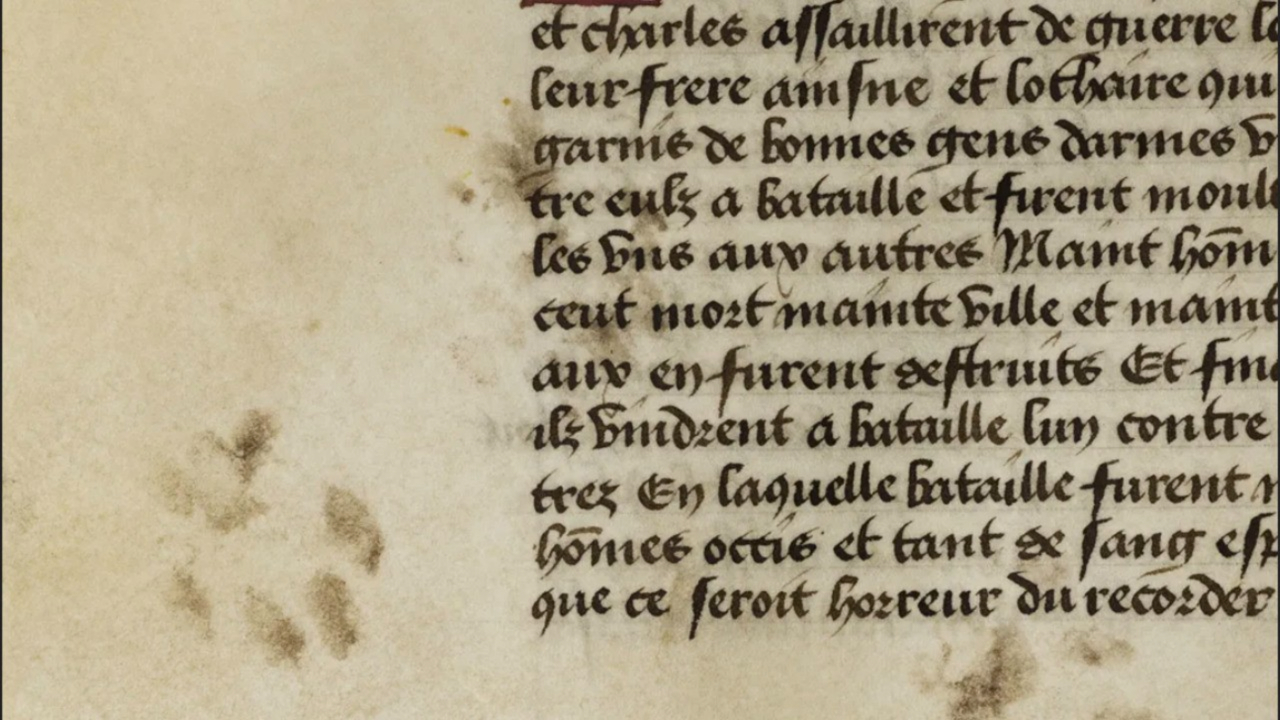 et charles assaillirent de guerre lo
leur frere ainsne et lothaire qui
garnis de bonnes gens darmes v
tre eulz a bataille et firent moult
les vns aux autres Maint hom̄
ceut mort mainte ville et maint
aux en furent destruits Et fina
ilz vindrent a bataille lun contre
trez En laquelle bataille furent
hom̄es occis et tant de sang esp
que ce seroit horreur du recorder